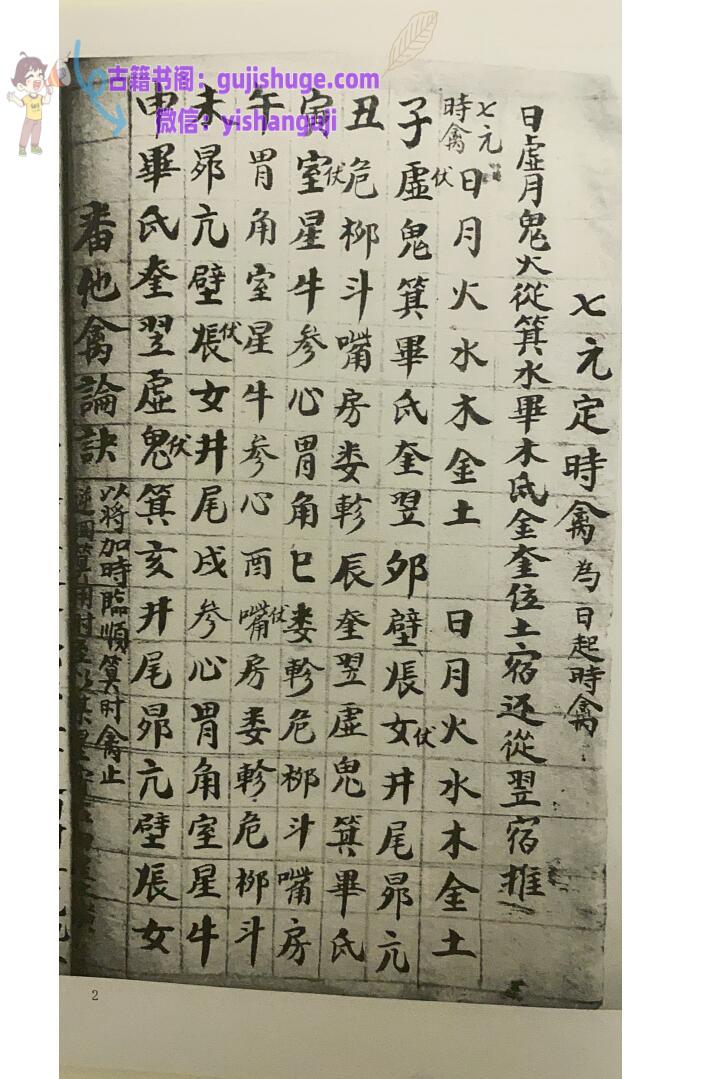 七元定時禽 為日起時禽
日虛月鬼火從箕水畢木氐金奎位土宿还從翌宿推
七元時禽 日月火水木金土 日月火水木金土
子虛伏鬼箕畢氐奎翌夘壁張女伏井尾昴亢
丑危柳斗嘴房娄軫辰奎翌虛鬼箕畢氐
寅室伏星牛参心胃角巳娄軫危柳斗嘴房
午胃角室星牛参心酉嘴伏房娄軫危柳斗
未昴亢壁張伏女井尾戌参心胃角室星牛
申畢氐奎翌虛鬼伏箕亥井尾昴亢壁張女
番他禽論訣 以将加時臨順算时禽止
2
古籍书阁：gujishuge.com
微信：yishanguji